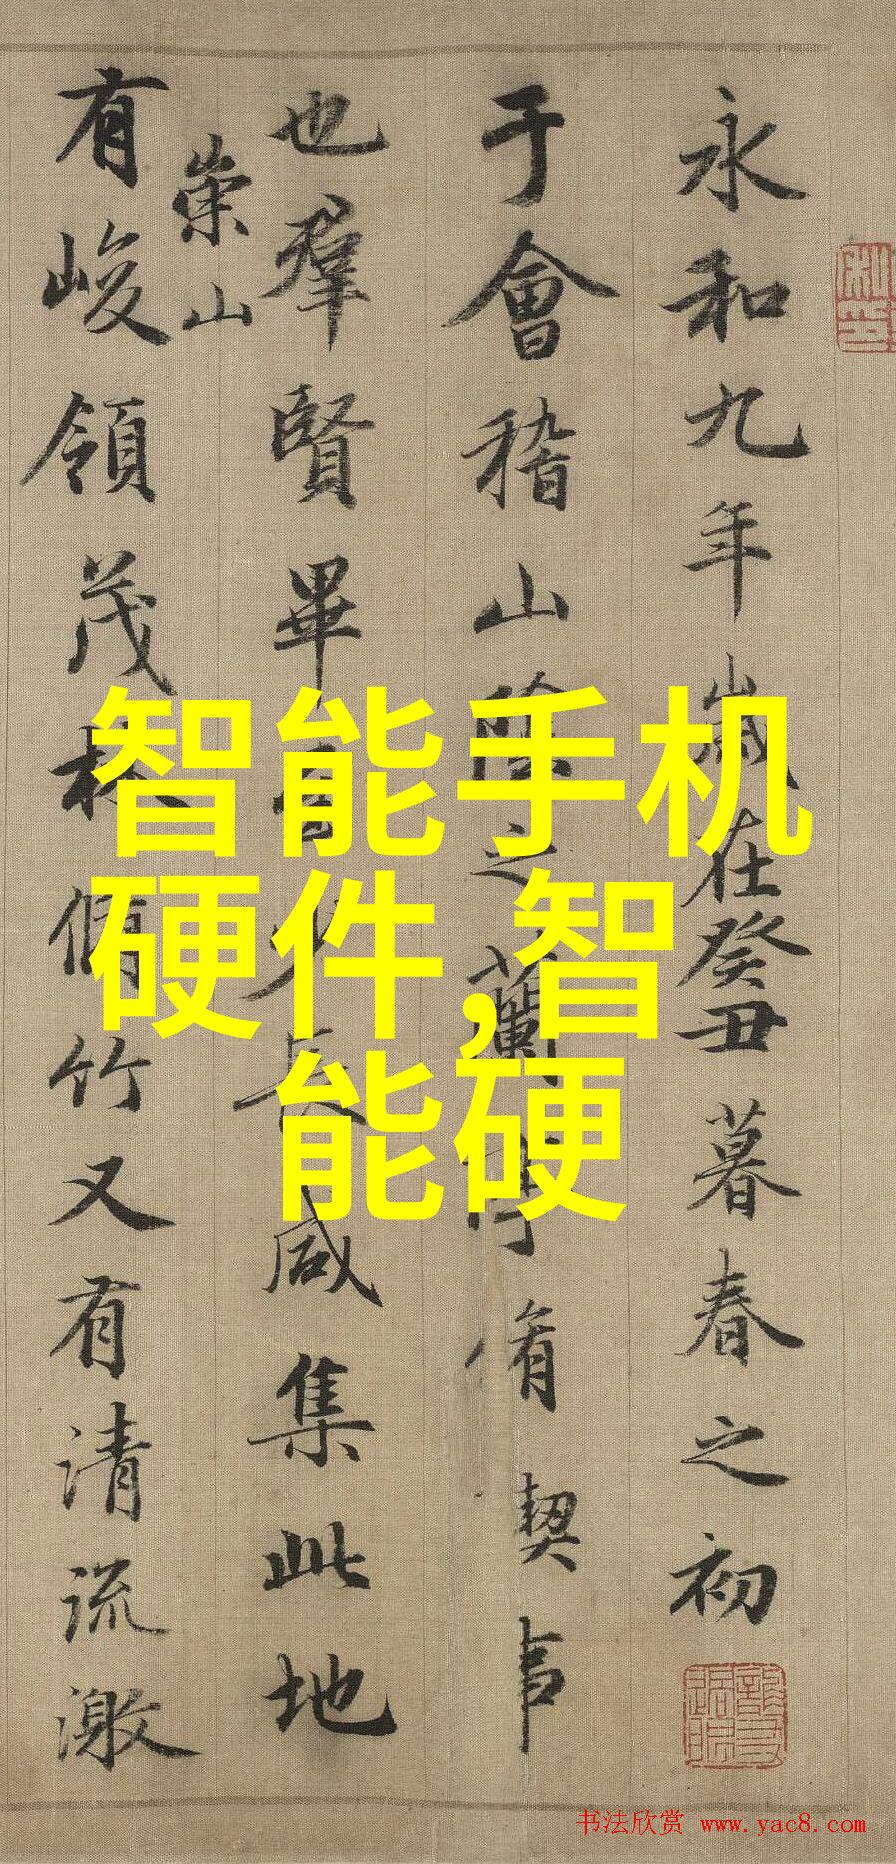 永和九年歲在癸丑暮春之初
于會稽山陰之蘭亭脩稧事
也羣賢畢至少長咸集此地
有峻領茂林脩竹又有清流激
崇山
智能手机
硬件,智
能硬
书法欣赏 www.yac8.com